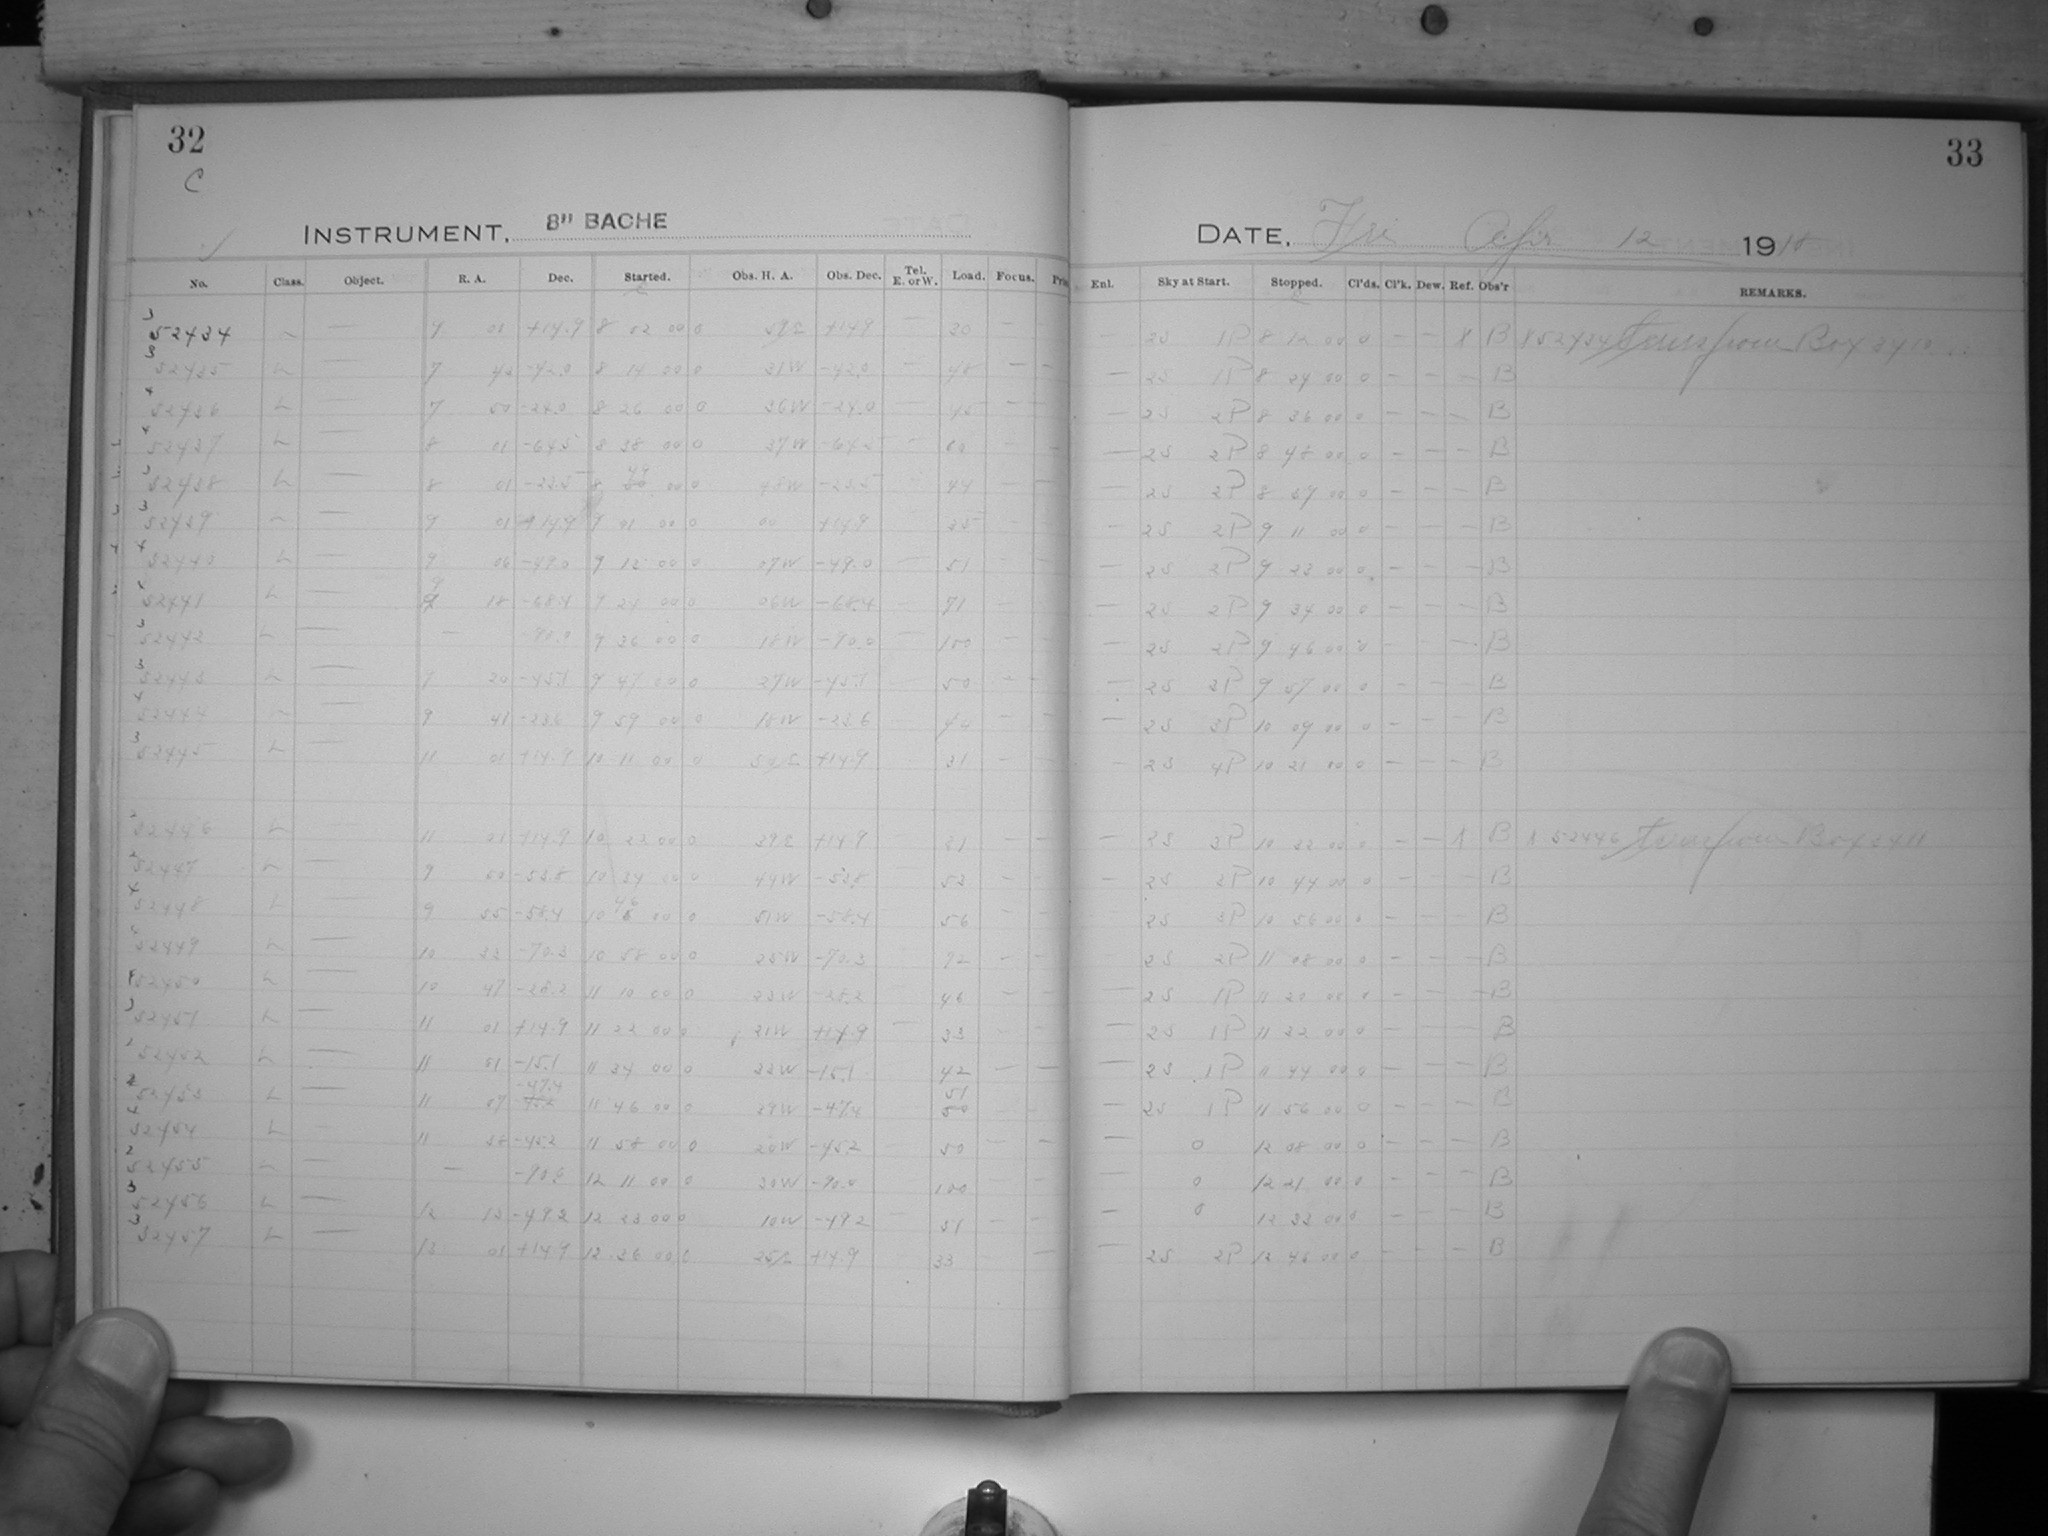 32
33
C
INSTRUMENT, 8" BACHE
DATE, Fri Apr 12 1918
No. Class. Object. R. A. Dec. Started. Obs. H. A. Obs. Dec. Tel. E. or W. Load. Focus. Enl. Sky at Start. Stopped. Cl'ds. Cl'k. Dew. Ref. Obs'r REMARKS.
52434 9 01 +14.9 8 02 00 0 59E +14.9 30 2S 1P 8 12 00 0 B 52434 from Box 3410
52435 L 7 42 -42.0 8 14 00 0 31W -42.0 48 2S 1P 8 24 00 0 B
52436 L 7 50 -24.0 8 26 00 0 36W -24.0 45 2S 2P 8 36 00 0 B
52437 L 8 01 -64.5 8 38 00 0 37W -64.5 60 2S 2P 8 48 00 0 B
52438 L 8 01 -23.5 8 49 00 0 48W -23.5 44 2S 2P 8 59 00 0 B
52439 9 01 +14.9 9 01 00 0 00 +14.9 35 2S 2P 9 11 00 0 B
52440 L 9 06 -49.0 9 12 00 0 07W -49.0 51 2S 2P 9 23 00 0 B
52441 L 9 18 -68.4 9 24 00 0 06W -68.4 71 2S 2P 9 34 00 0 B
52442 L -90.0 9 36 00 0 18W -90.0 100 2S 2P 9 46 00 0 B
52443 L 9 20 -45.1 9 47 00 0 27W -45.1 50 2S 3P 9 57 00 0 B
52444 9 41 -23.6 9 59 00 0 18W -23.6 2S 3P 10 09 00 0 B
52445 L 11 01 +14.9 10 11 00 0 50E +14.9 31 2S 4P 10 21 00 0 B
52446 L 11 01 +14.9 10 22 00 0 39E +14.9 31 2S 3P 10 32 00 0 B 52446 from Box 3411
52447 L 9 50 -53.8 10 34 00 0 44W -53.8 53 2S 3P 10 44 00 0 B
52448 L 9 55 -58.4 10 46 00 0 51W -58.4 56 2S 3P 10 56 00 0 B
52449 L 10 33 -70.3 10 58 00 0 25W -70.3 72 2S 2P 11 08 00 0 B
52450 L 10 47 -28.2 11 10 00 0 23W -28.2 46 2S 1P 11 20 00 0 B
52451 L 11 01 +14.9 11 22 00 0 21W +14.9 33 2S 1P 11 32 00 0 B
52452 L 11 01 -15.1 11 34 00 0 33W -15.1 42 2S 1P 11 44 00 0 B
52453 L 11 07 -47.4 11 46 00 0 39W -47.4 51 2S 1P 11 56 00 0 B
52454 L 11 38 -45.2 11 58 00 0 20W -45.2 50 0 12 08 00 0 B
52455 -90.0 12 11 00 0 30W -90.0 100 0 12 21 00 0 B
52456 L 12 13 -49.2 12 23 00 0 10W -49.2 51 0 12 33 00 0 B
52457 L 13 01 +14.9 12 36 00 0 25E +14.9 33 2S 2P 12 46 00 0 B